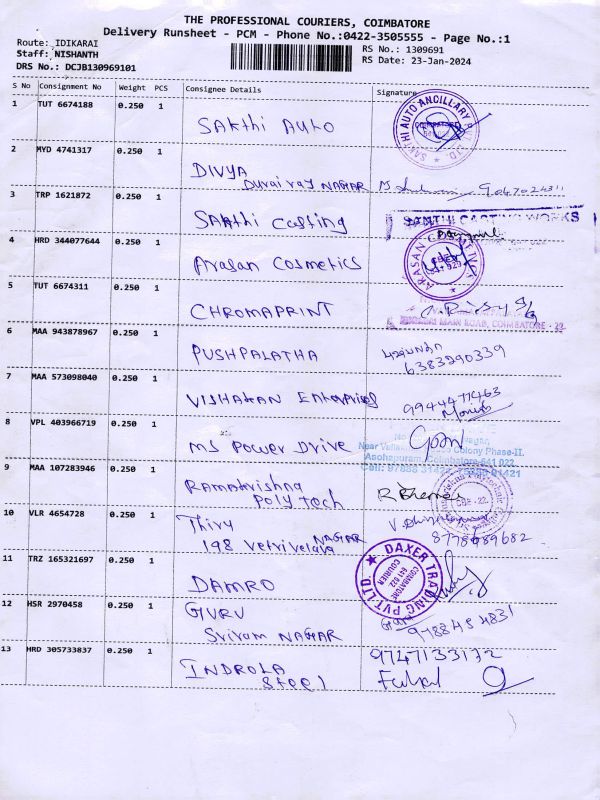 THE PROFESSIONAL COURIERS, COIMBATORE
Delivery Runsheet - PCM - Phone No.:0422-3505555 - Page No.:1
Route: IDIKARAI
RS No.: 1309691
Staff: NISHANTH
RS Date: 23-Jan-2024
DRS No.: DCJB130969101
S No Consignment No Weight PCS Consignee Details Signature
1 TUT 6674188 0.250 1
SAKthi AUtO
SAKTHI AUTO ANCILLARY LTD
2 MYD 4741317 0.250 1
DIVYA
Durai raj NAGAR
3 TRP 1621872 0.250 1
SAKthi Casting
SAKTHI CASTING WORKS
4 HRD 344077644 0.250 1
Arasan Cosmetics
5 TUT 6674311 0.250 1
CHROMAPRINT
MAIN ROAD, COIMBATORE - 22
6 MAA 943878967 0.250 1
PUSHPALATHA
6383290339
7 MAA 573098040 0.250 1
VISHAKAN Enterprises
9944477463
8 VPL 403966719 0.250 1
MS Power Drive
Colony Phase-II.
Asokapuram, Coimbatore-641 022
9 MAA 107283946 0.250 1
Ramakrishna
Poly tech
10 VLR 4654728 0.250 1
Thiru
198 Vetrivelava NAGAR
8778689682
11 TRZ 165321697 0.250 1
DAMRO
DAXER TRADING PVT LTD
COURIER
COIMBATORE
641 022
12 HSR 2970458 0.250 1
GURU
Sriram NAGAR
9788454831
13 HRD 305733837 0.250 1
INDROLA
Steel
9747133172